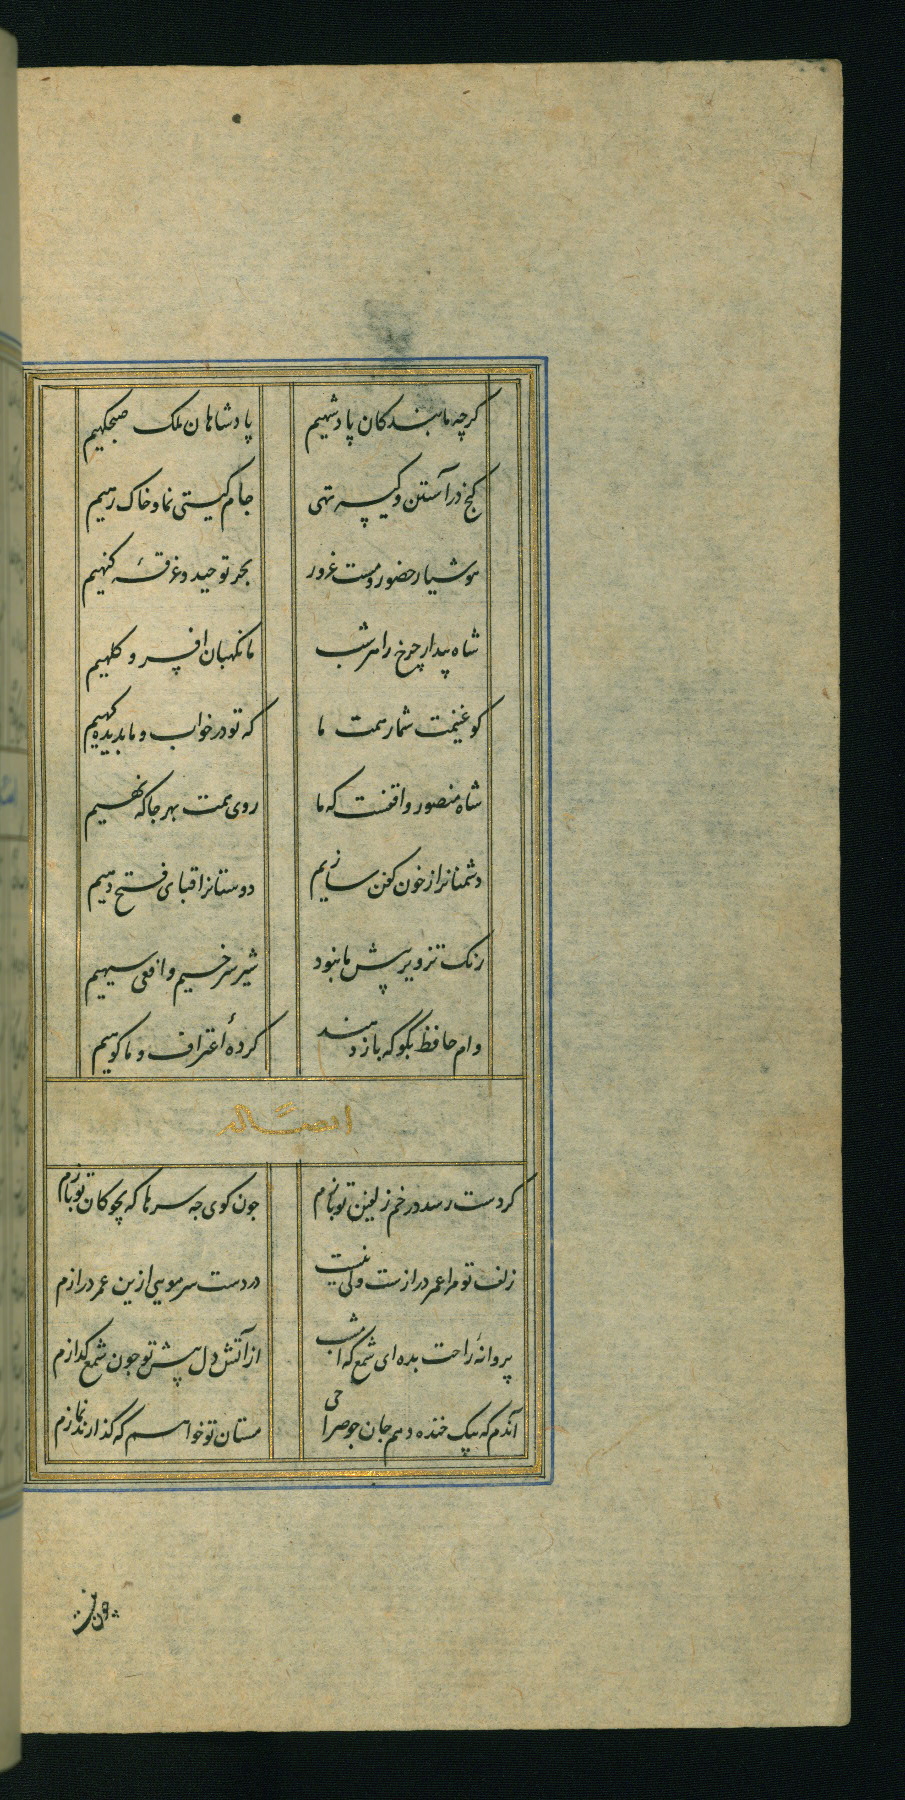 کرچه ما بندکان پادشهیم
پادشاهان ملک صبحکهیم
کنج در آستین و کیسه تهی
جام کیتی نما و خاک رهیم
هوشیار حضور و مست غرور
بحر توحید و غرقه کنهیم
شاه بیدار چرخ را هر شب
ما نکهبان افسر و کلهیم
کو غنیمت شمار همت ما
که تو در خواب و ما بدیده کهیم
شاه منصور واقفست که ما
روی همت بهر جا که نهیم
دشمنانرا ز خون کفن سازیم
دوستانرا قبای فتح دهیم
رنک تزویر پیش ما نبود
شیر سرخیم و افعی سیهیم
وام حافظ بکو که باز دهند
کردهٔ اعتراف و ما کوهیم
ایضا له
کر دست رسد در خم زلفین تو بازم
جون کوی جه سرها که بچوکان تو بازم
زلف تو مرا عمر درازست ولی نیست
در دست سر مویی ازین عمر درازم
پروانهٔ راحت بده ای شمع که امشب
از آتش دل پیش تو جون شمع کدازم
آندم که بیک خنده دهم جان جو صراحی
مستان تو خواهم که کذارند نمازم
چون نیست